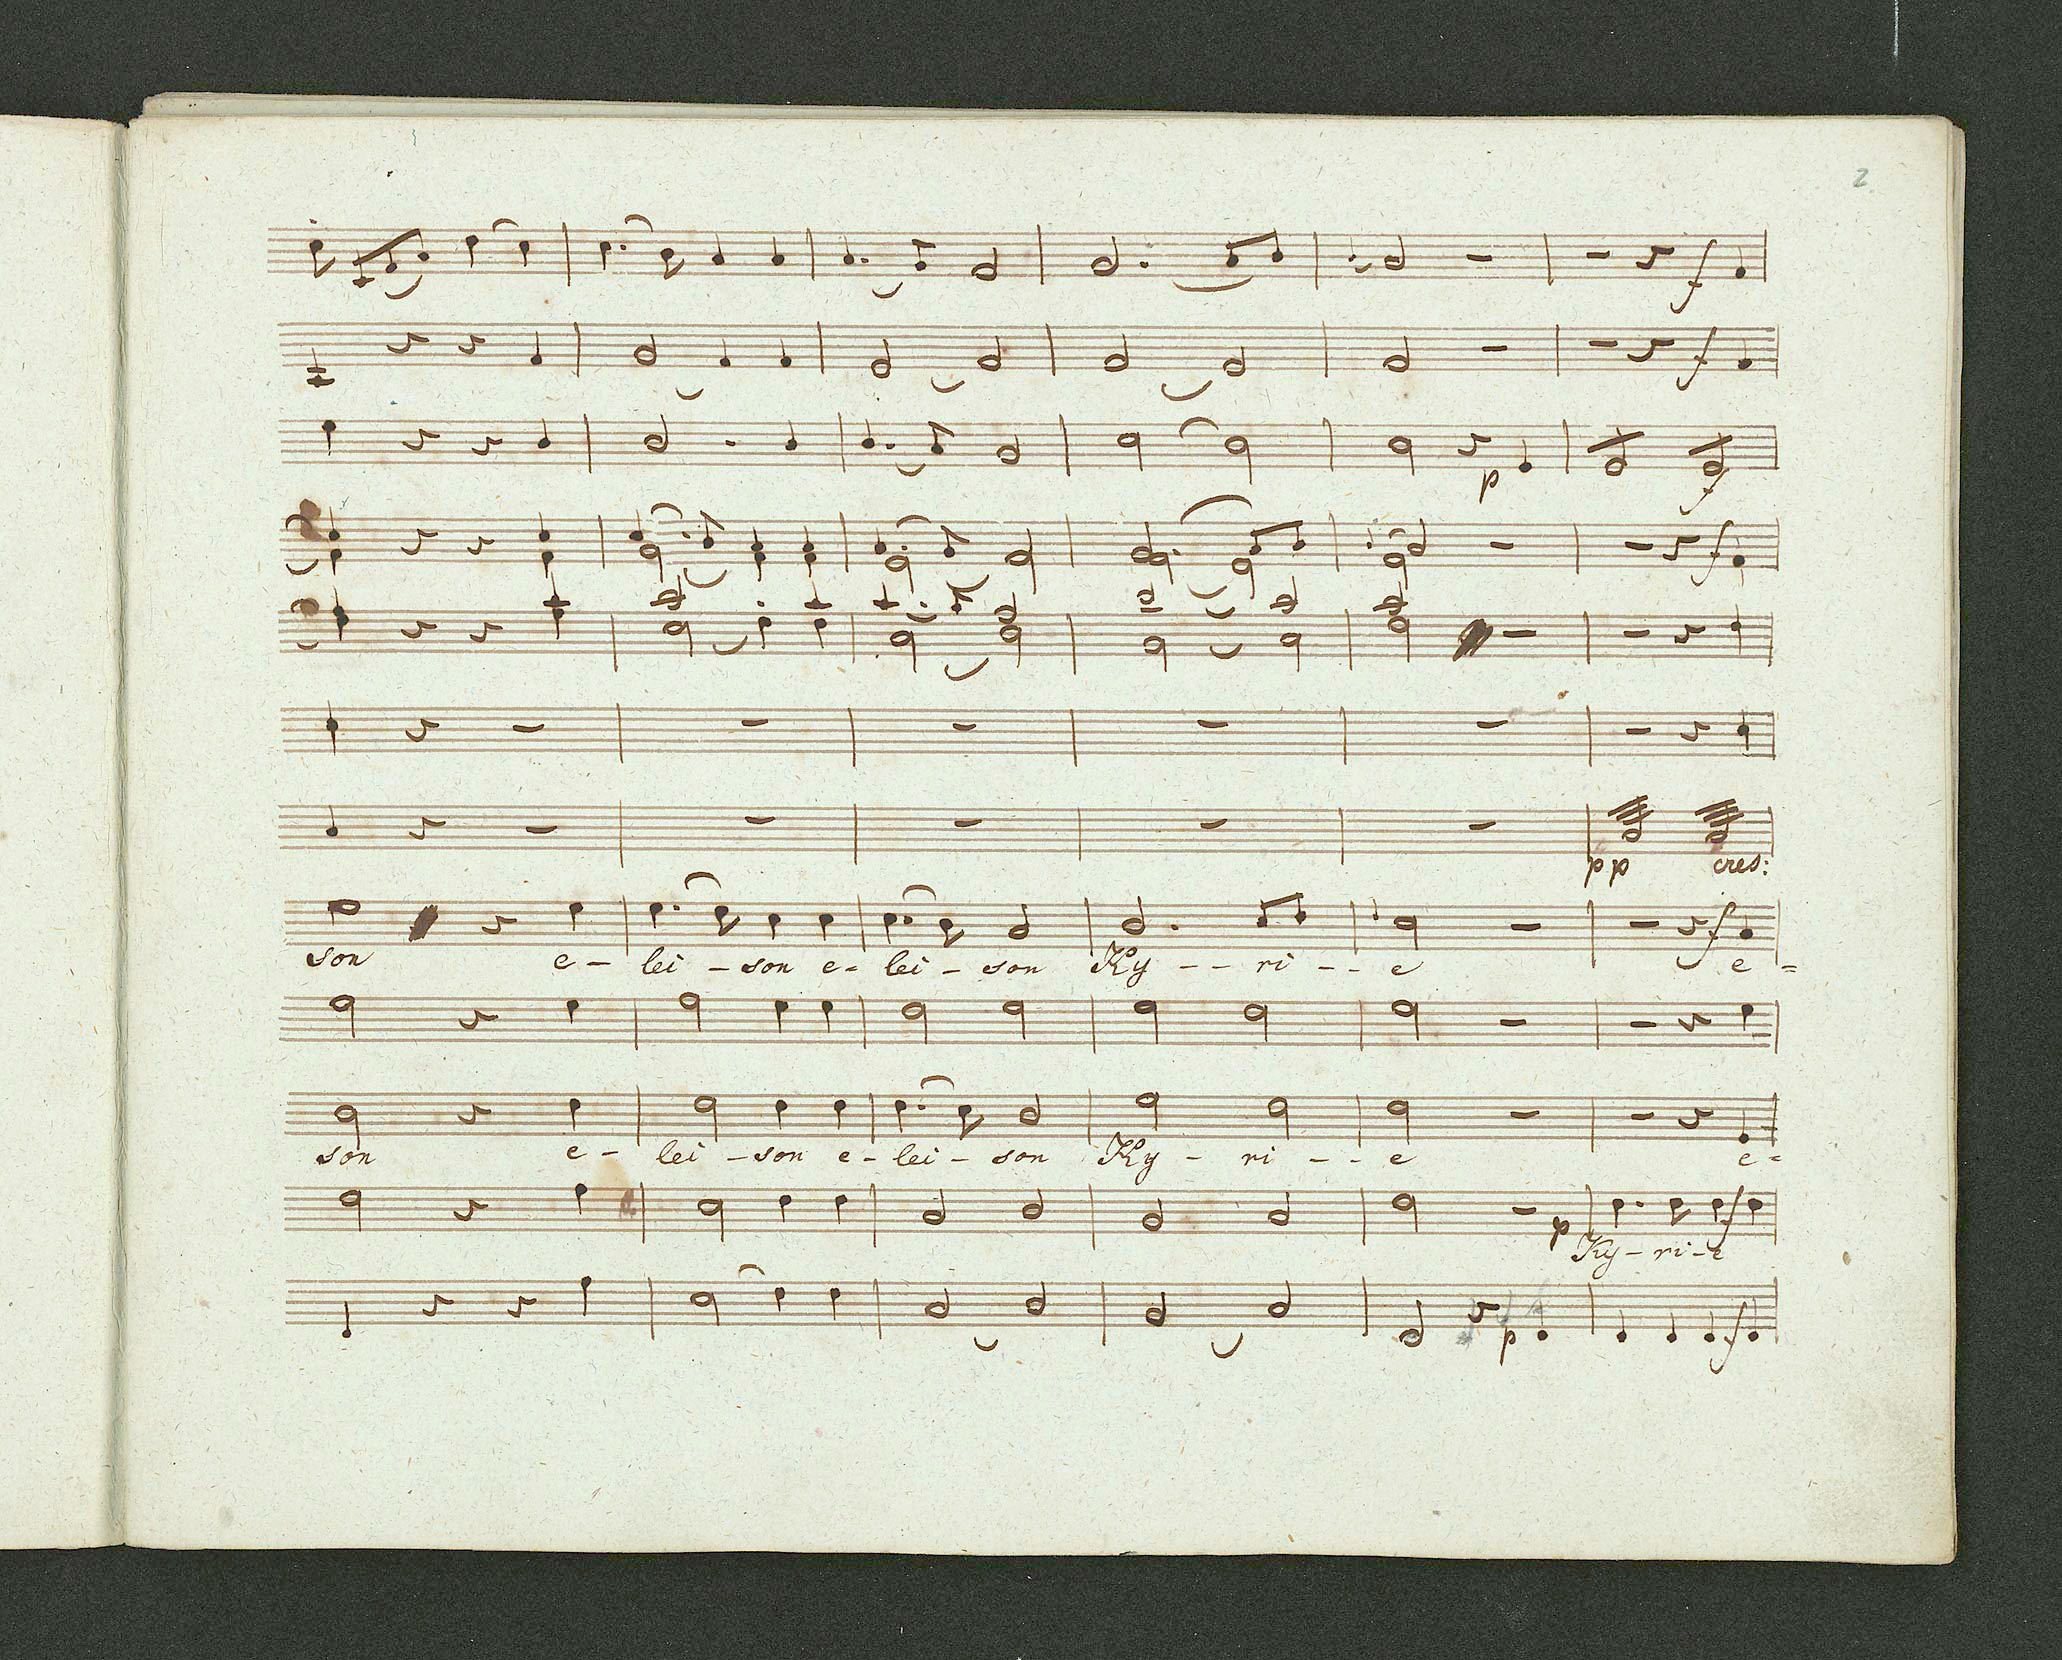 2
f
f
p f
f
pp cres:
f
son e - lei - son e - lei - son Ky - - ri - - e e =
son e - lei - son e - lei - son Ky - ri - - e e =
p f
Ky - ri - e
p f